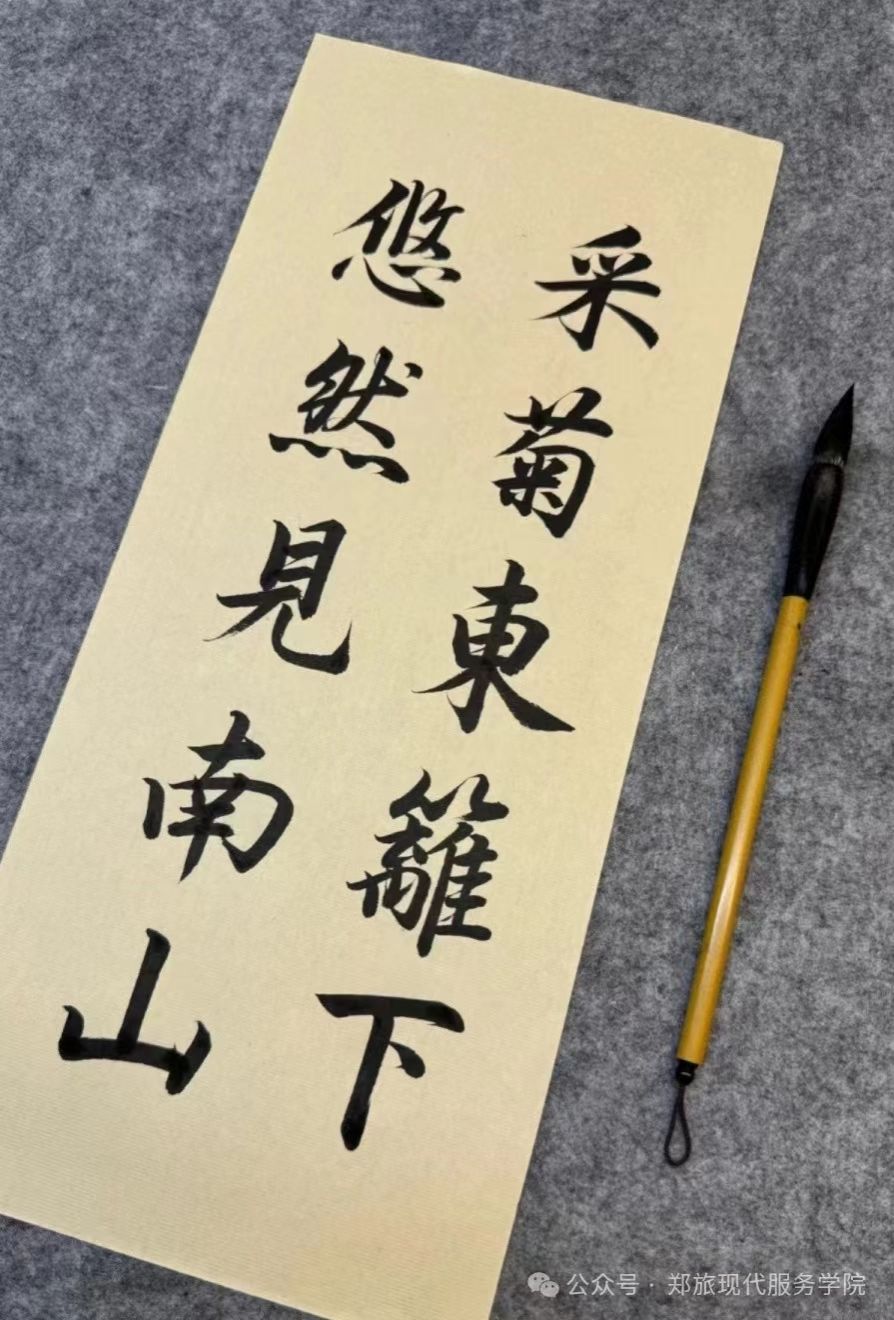 采菊東籬下
悠然見南山
公众号 · 郑旅现代服务学院